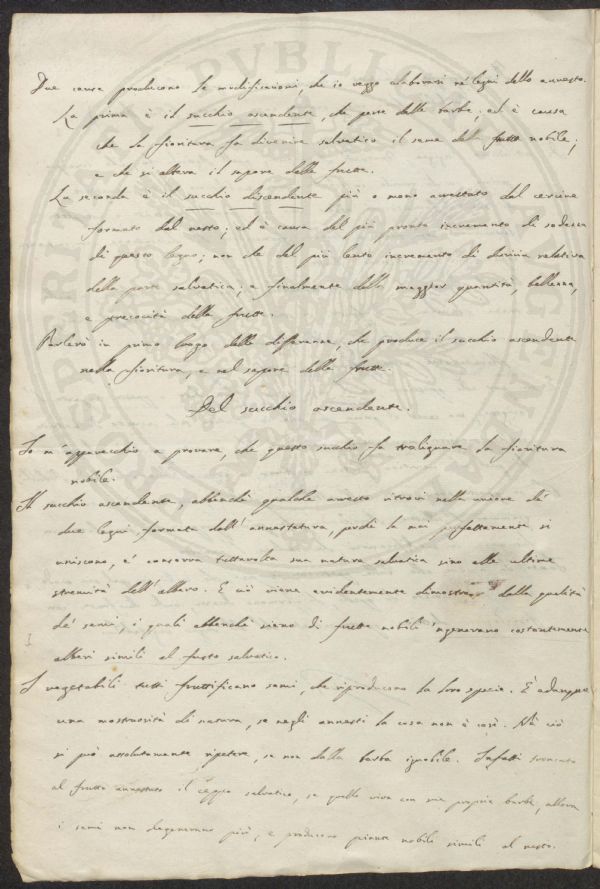 Due cause producono le modificazioni, che io veggo elaborarsi ne' legni dello annesto.
La prima è il succhio ascendente, che parte dalle barbe, ed è causa
che la fioritura fa divenire salvatico il seme del frutto nobile;
e che si altera il sapore delle frutte.
La seconda è il succhio discendente più o meno arrestato dal cercine
formato dal nesto; ed è causa del più pronto incremento di sodezza
di questo legno; non che del più lento incremento di relativa
della parte salvatica; e finalmente della maggior quantità, bellezza,
e precocità delle frutte.
Parlerò in primo luogo delle differenze, che produce il succhio ascendente
nella fioritura, e nel sapore delle frutte.
Del succhio ascendente.
Io m'apparecchio a provare, che questo succhio fa tralignare la fioritura
nobile.
Il succhio ascendente, abbenchè qualche arresto ritrovi nella unione de'
due legni formata dall'annestatura, perchè la mai perfettamente si
uniscono, e' conserva tuttavolta sua natura salvatica sino alle ultime
stremità dell'albero. E ciò viene evidentemente dimostrato dalla qualità
de' semi, i quali abbenchè sieno di frutte nobili ingenerano costantemente
alberi simili al fusto salvatico.
I vegetabili tutti fruttificano semi, che riproducono la loro specie. È adunque
una mostruosità di natura, se negli annesti la cosa non è così. Nè ciò
si può assolutamente ripetere, se non dalla barba ignobile. Infatti troncato
al frutto annestato il ceppo salvatico, se quello viva con sue proprie barbe, allora
i semi non degenerano più, e producono piante nobili simili al nesto.
PVBLI